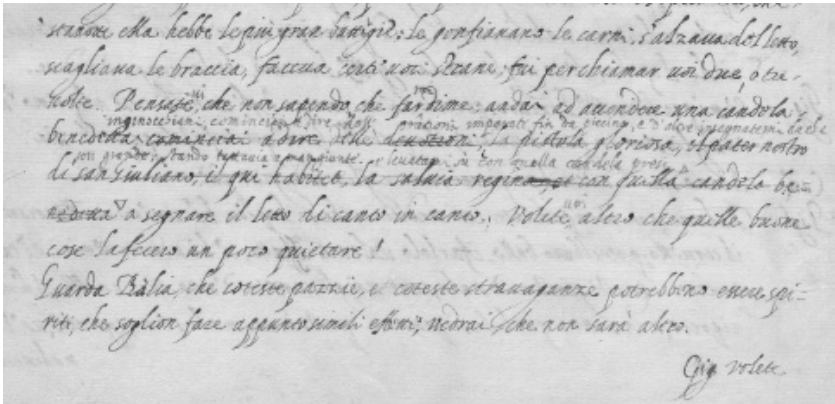 stanotte ella hebbe le più gran battigie: le gonfiavano le carni, s'alzava del letto,
scagliava le braccia, faceva certi voci strane; fui per chiamar voi due, o tre
volte. Pensate voi, che non sapendo che far di me; andai ad accendere una candela
inginocchioni; cominciai a dire mess orazioni imparate fin da piccina, e d'altre insegnatemi da che
benedetta cominciai a dire delle devozioni, la pistola gloriosa, il pater nostro
son grande; stando tuttavia levatami su con quella candela presi
di san Giuliano, il qui habitet, la salvia regina et con quella candela be-
nedetta a segnare il letto di canto in canto. Volete voi altro che quelle buone
cose la fecero un poco quietare!
Guarda Bàlia, che coteste pazzie, e coteste stravaganze potrebbino essere spi-
riti, che soglion fare appunto simili effetti; vedrai, che non sarà altro.
Gig volete